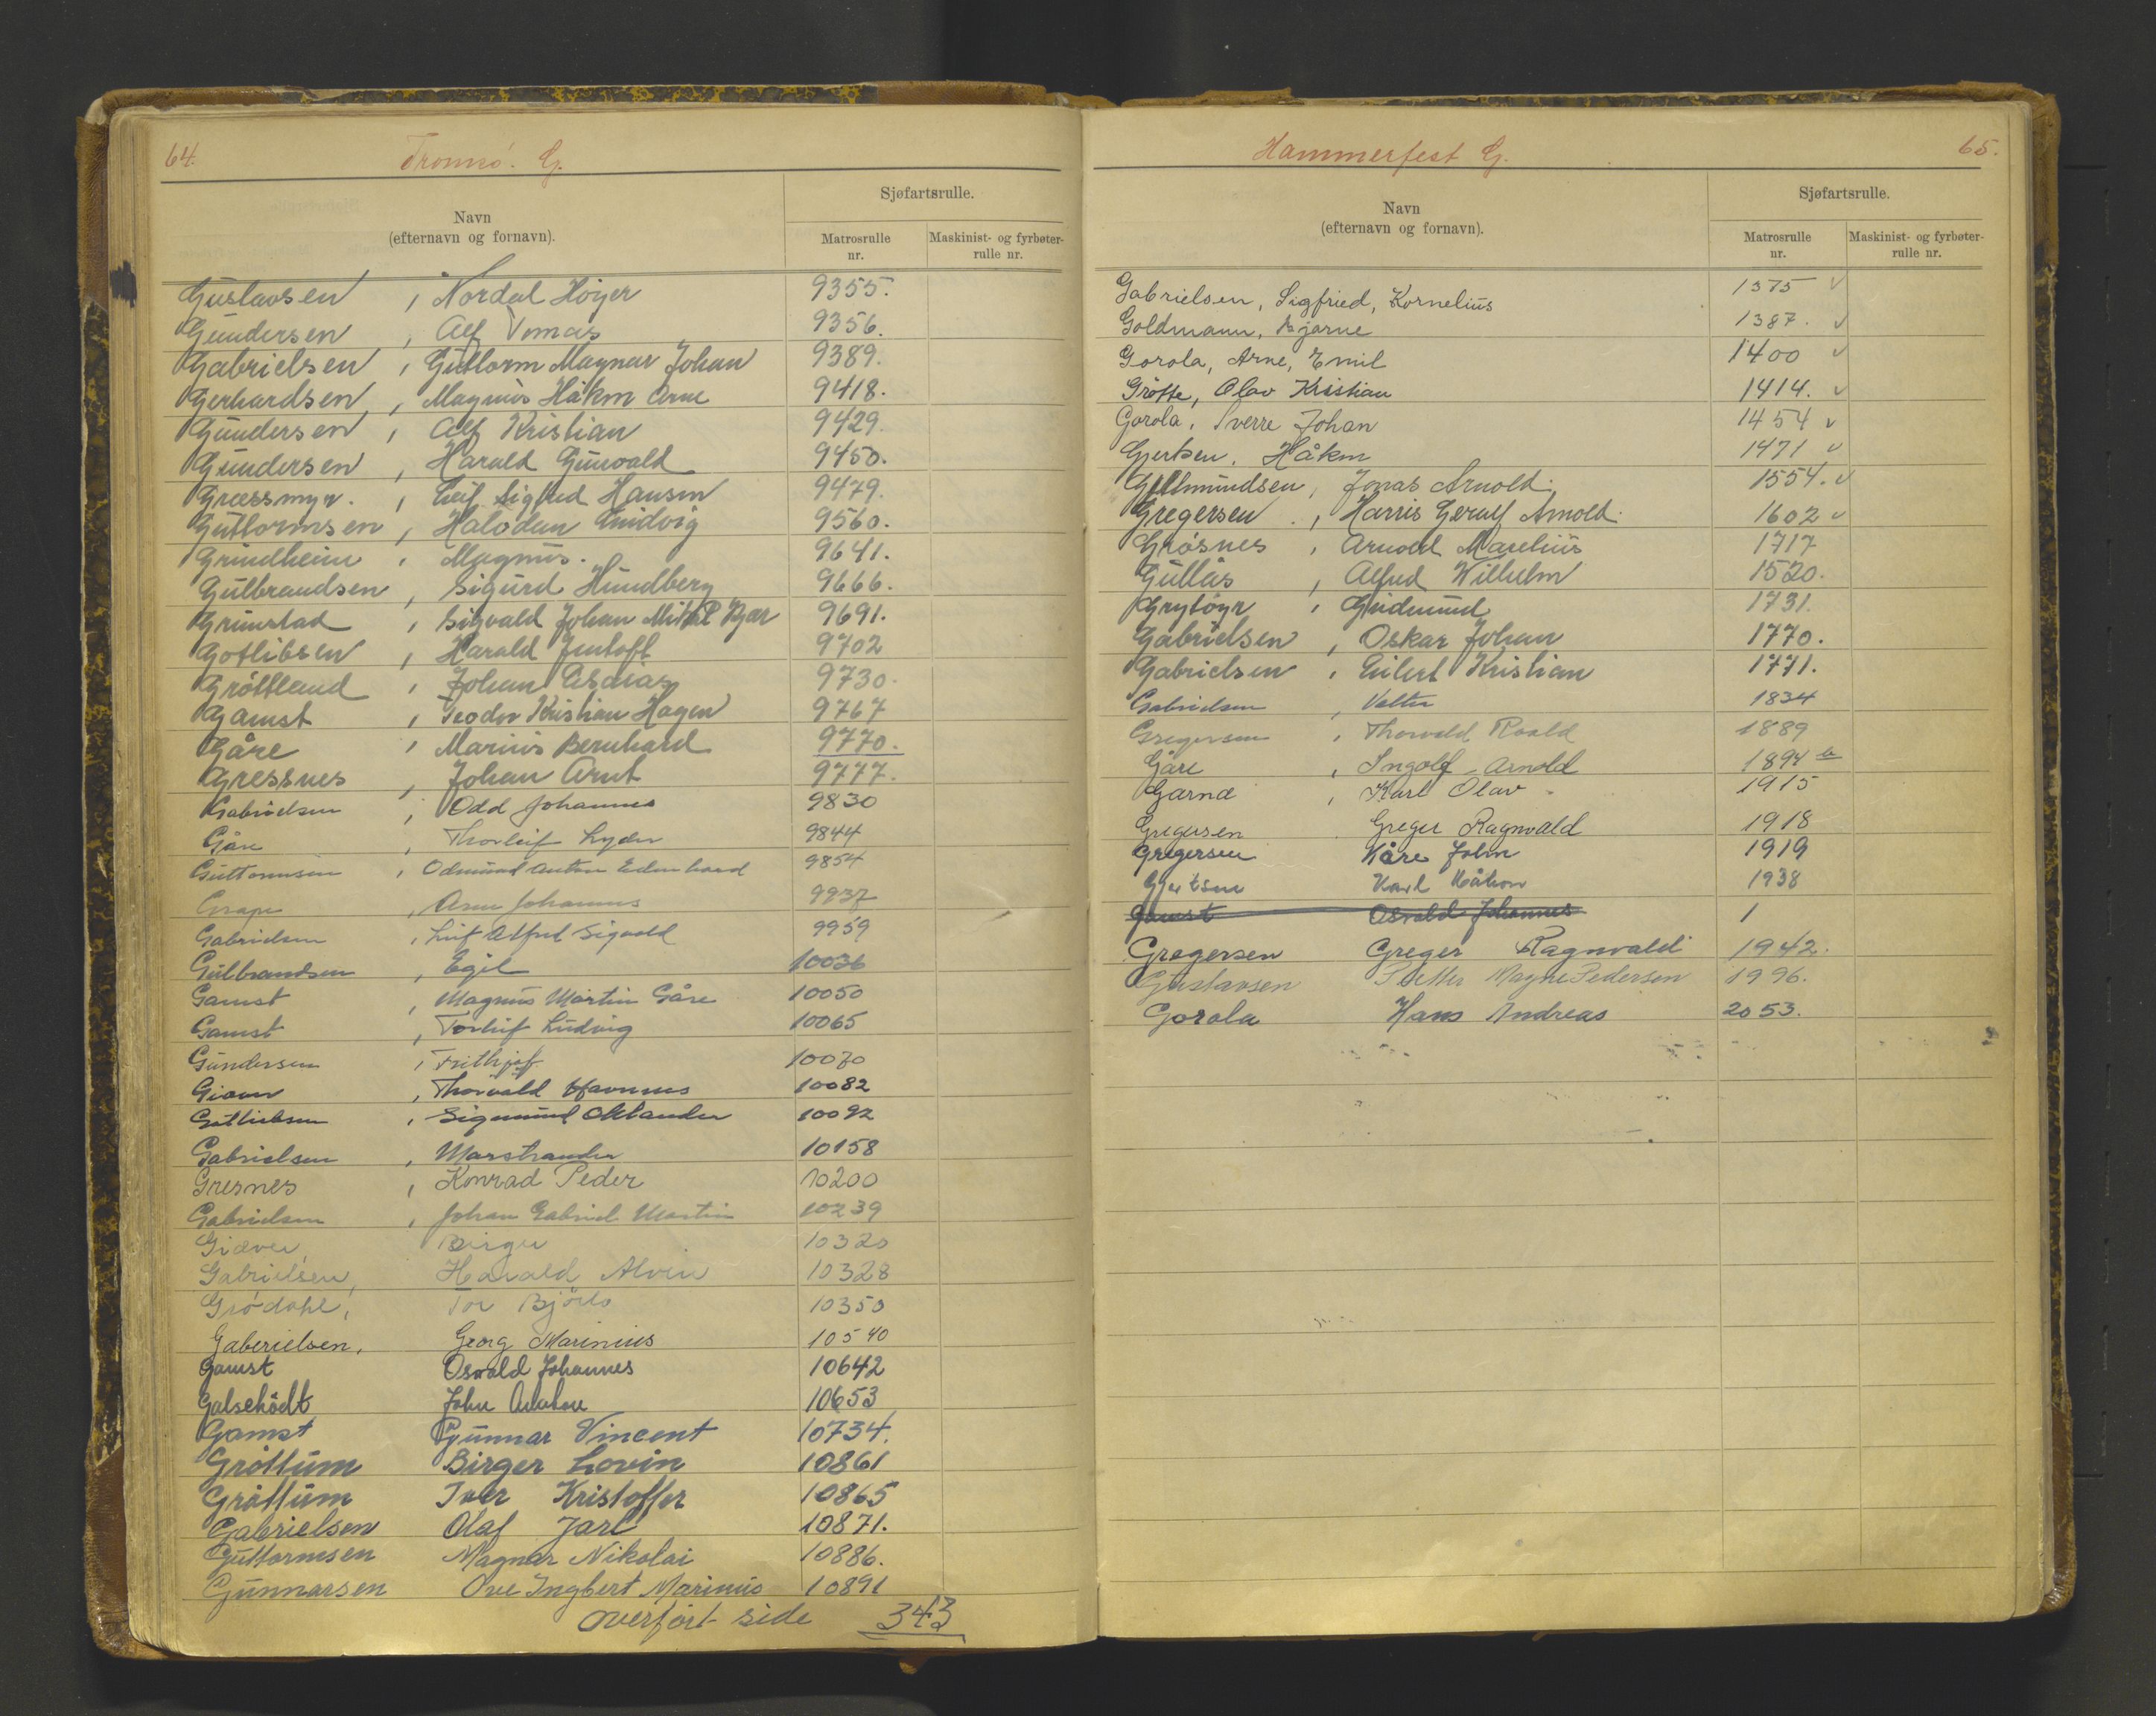 64.
Tromsø. G.
Navn
(efternavn og fornavn).
Sjøfartsrulle.
Matrosrulle
nr.
Maskinist- og fyrbøter-
rulle nr.
Gustavsen , Nordal Höyer 9355.
Gundersen , Alf Tomas 9356.
Gabrielsen , Guttorm Magnar Johan 9389.
Gerhardsen , Magnus Håkon Arne 9418.
Gundersen , Alf Kristian 9429.
Gundersen , Harald Gunvald 9450.
Græssmyr. , Leif Sigfred Hansen 9479.
Guttormsen , Halvdan 9560.
Grundheim , Magnus. 9641.
Gulbrandsen , Sigurd Hundberg 9666.
Grimstad , Sigvald Johan 9691.
Gotlibsen , Harald Jentoft 9702
Gröttland , Johan Esaias 9730.
Gamst , Teodor Kristian Hagen 9767
Gåre , Marius Bernhard 9770.
Gressnes , Johan Arnt 9777.
Gabrielsen , Odd Johannes 9830
Gåre , Thorleif Lyder 9844
Guttormsen , Odmund Anton 9854
Grape , Arne Johannes 9937
Gabrielsen , Leif Alfred Sigvald 9959
Gulbrandsen , Egil 10036
Gamst , Magnus Martin Gåre 10050
Gamst , Torleif Ludvig 10065
Gundersen , Frithjof 10070
, Thorvald 10082
Gottliebsen , Sigmund 10092
Gabrielsen , Marstrander 10158
Gresnes , Konrad Peder 10200
Gabrielsen , Johan Gabriel Martin 10239
Giæver, Birger 10320
Gabrielsen, Harald Alvin 10328
Grödahl, Tor 10350
Gaberielsen, Georg Marinius 10540
Gamst Osvald Johannes 10642
Galschödt John 10653
Gamst Gunnar Vincent 10734.
Gröttum Birger Lovin 10861
Gröttum Iver Kristoffer 10865
Gabrielsen Olaf Jarl 10871.
Guttormsen Magnar Nikolai 10886.
Gunnarsen Ove Ingbert Marinus 10891
overført side 343
Hammerfest G.
65.
Navn
(efternavn og fornavn).
Sjøfartsrulle.
Matrosrulle
nr.
Maskinist- og fyrbøter-
rulle nr.
Gabrielsen, Sigfried, Kornelius 1375 ✓
Goldmann, Bjarne 1387. ✓
Gorola, Arne, Emil 1400 ✓
Grötte, Olav Kristian 1414. ✓
Gorola, Sverre Johan 1454 ✓
Gjertsen, Håkon 1471 ✓
Jonas Arnold. 1554. ✓
Gregersen , Harris Gerulf Arnold. 1602 ✓
Grøsnes , Arnold Marelius 1717
Gullås , Alfred Wilhelm 1520.
Grytöyr , Gudmund 1731.
Gabrielsen , Oskar Johan 1770.
Gabrielsen , Eilert Kristian 1771.
Gabrielsen , Valter 1834
Gregersen , Thorvald Roald 1889
Gåre , Ingolf Arnold 1894
Garnæ , Karl Olav 1915
Gregersen Greger Ragnvald 1918
Gregersen Kåre John 1919
Gjertsen Karl Håkon 1938
Gamst Osvald Johannes 1
Gregersen Greger Ragnvald 1942.
Gustavsen Petter Magne Pedersen 1996.
Gorola Hans Andreas 2053.